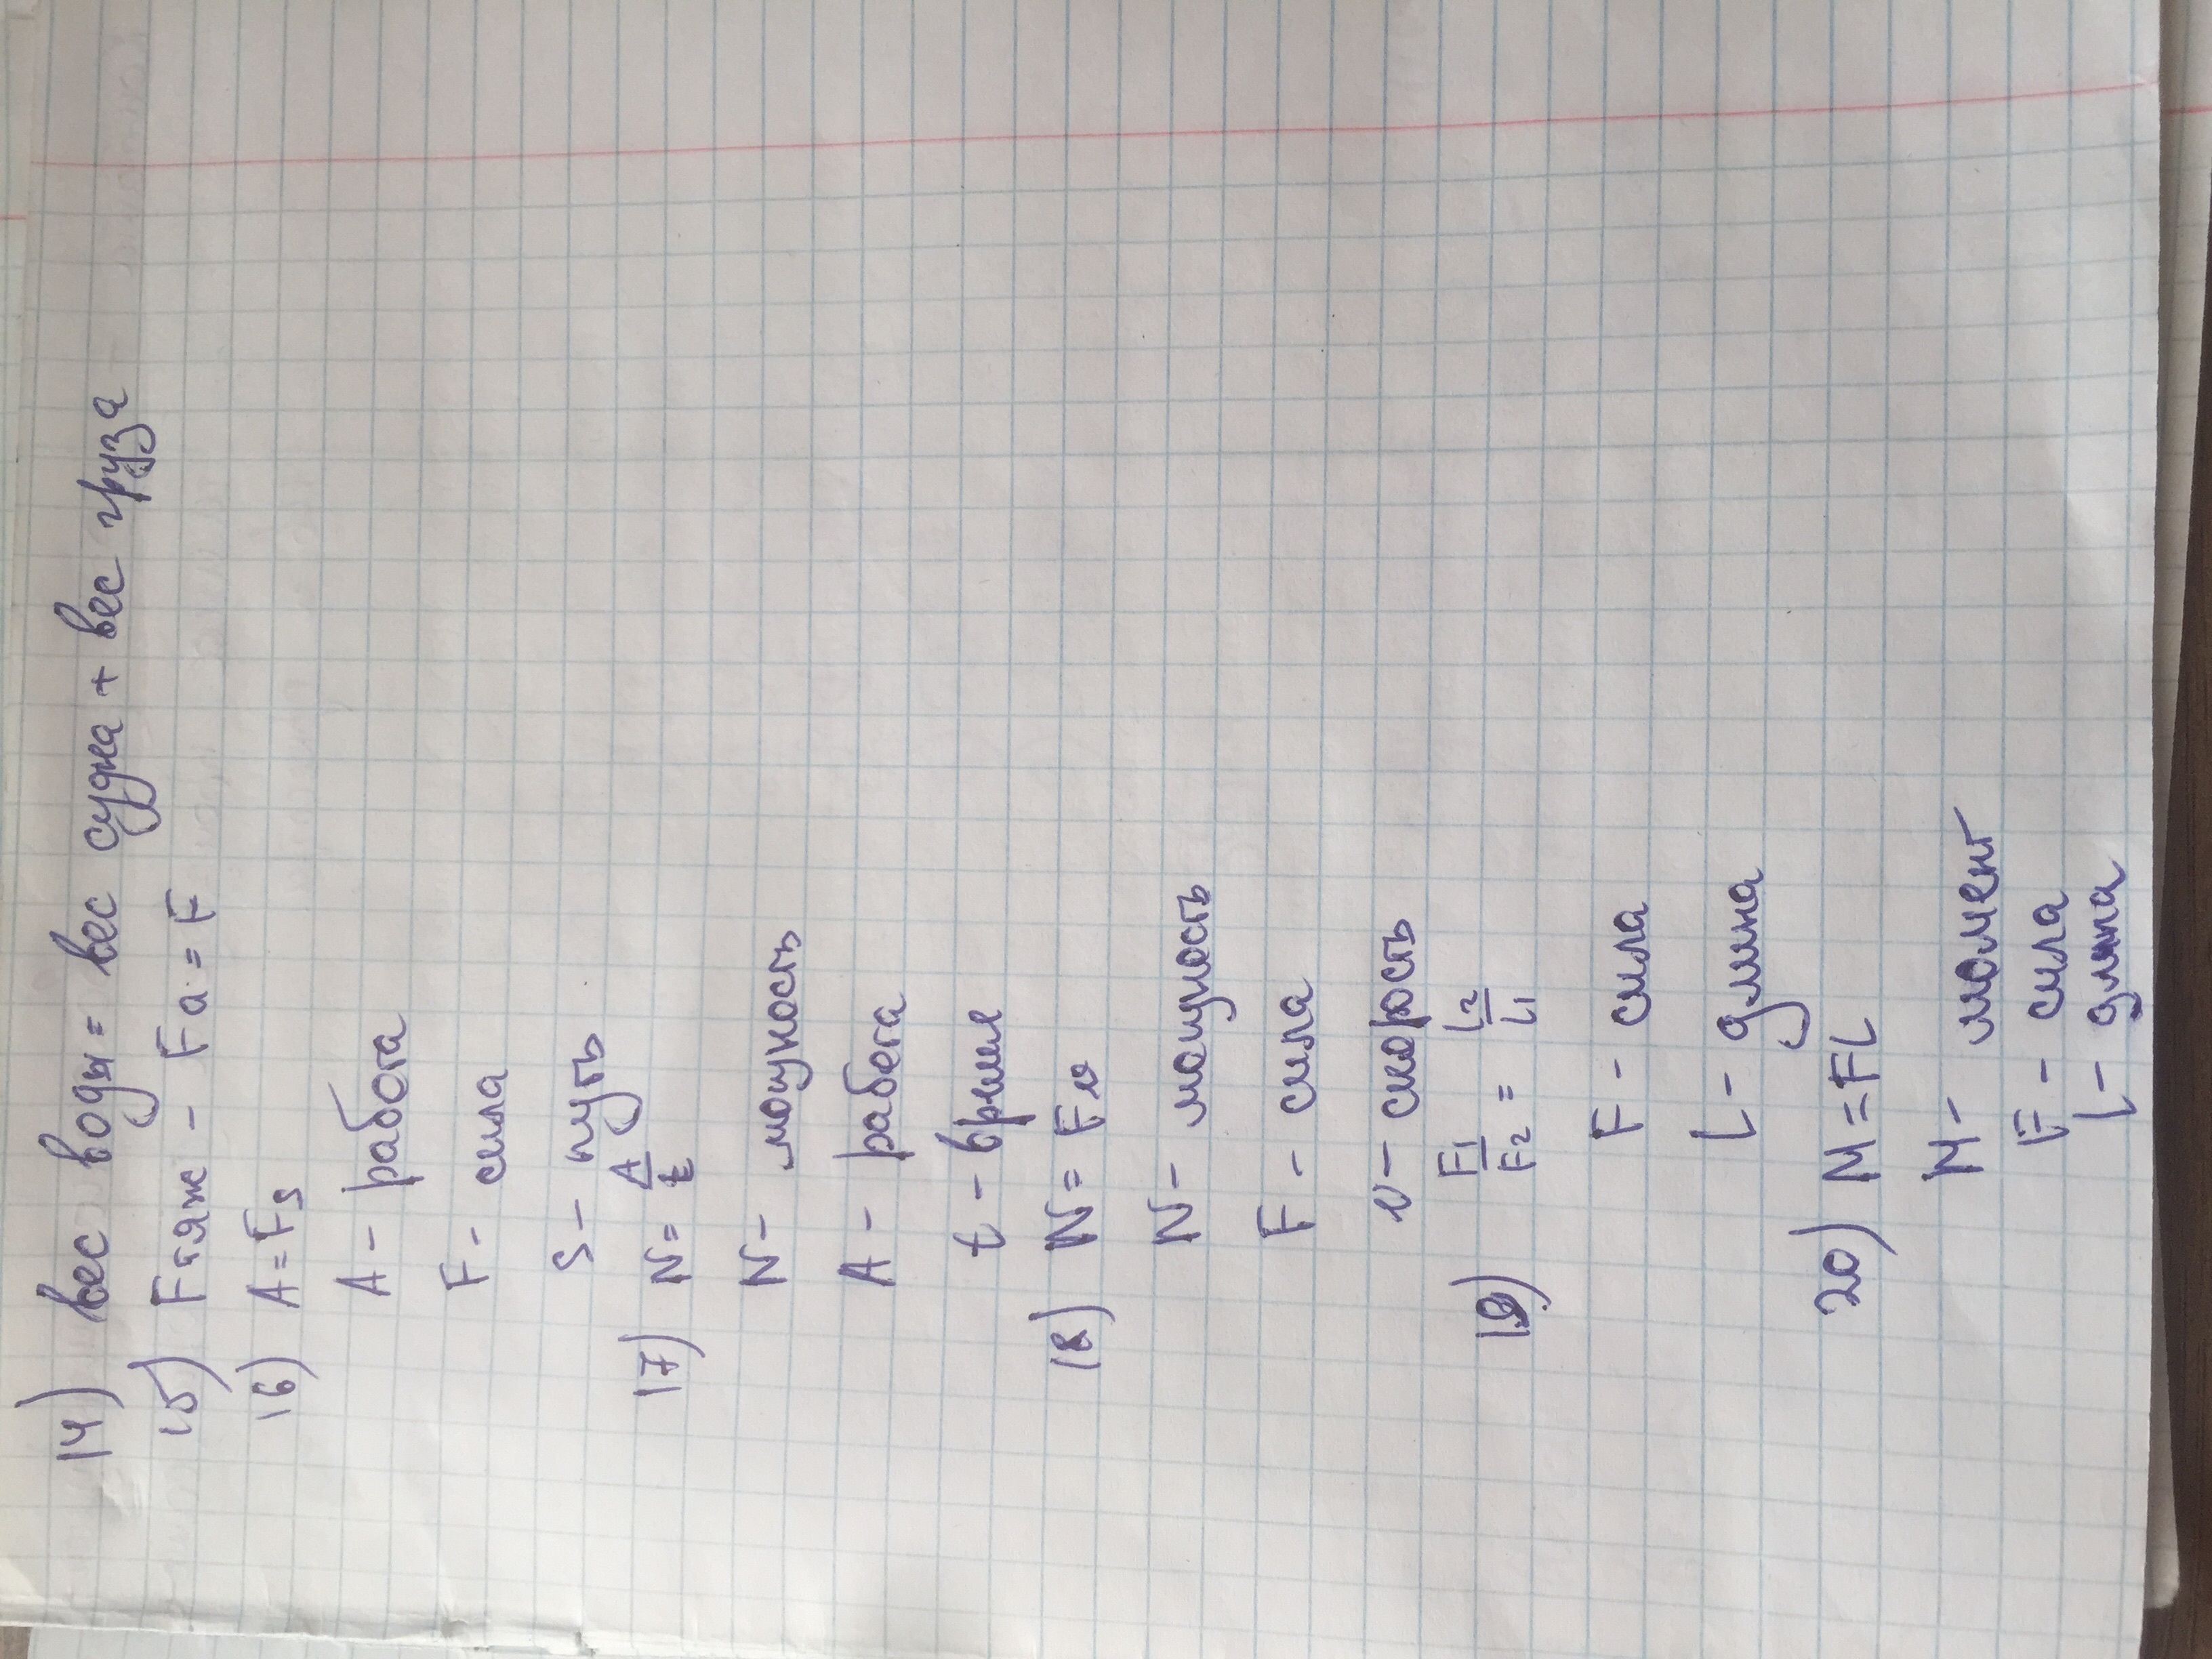 14) вес воды = вес судна + вес груза
15) Fтяж - Fа = F
16) A = Fs
A - работа
F - сила
s - путь
17) N = A/t
N - мощность
A - работа
t - время
18) N = Fv
N - мощность
F - сила
v - скорость
19) F1/F2 = L2/L1
F - сила
L - длина
20) M = FL
M - момент
F - сила
L - длина